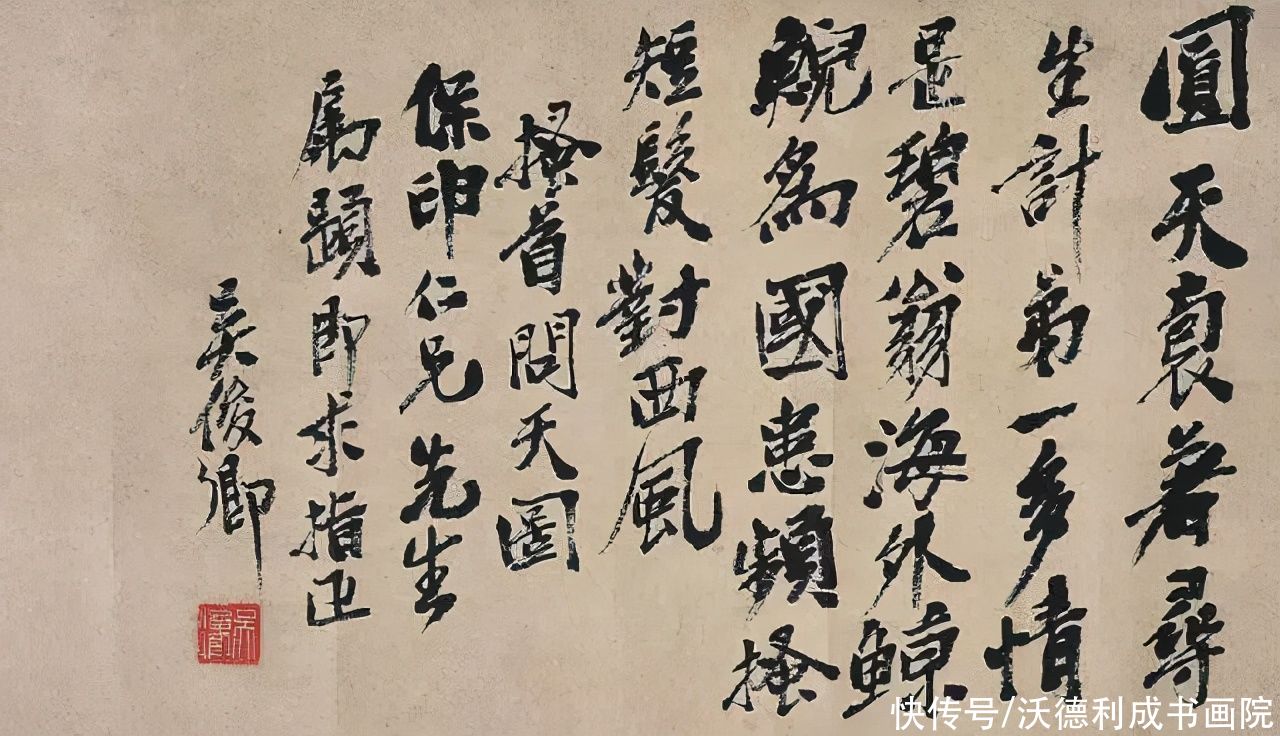 圓天裏著尋
生計弟一多情
是碧翁海外鯨
鯢為國患頻搔
短髮對西風
搔首問天圖
保印仁兄先生
屬題即求指正
吳俊卿
快传号/沃德利成书画院